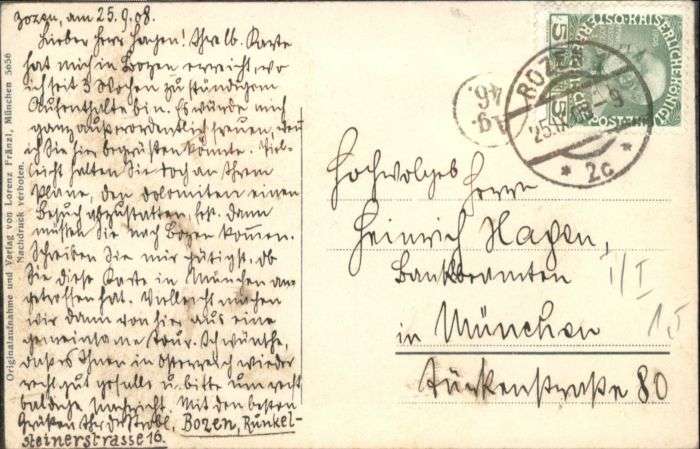 Bozen, am 25.9.08.
Lieber Herr Hagen! Ihre lb. Karte
hat mich in Bozen erreicht, wo
ich seit 3 Wochen zu ständigem
Aufenthalte bin. Es würde mich
ganz außerordentlich freuen, wenn
ich Sie hier begrüßen könnte. Viel-
leicht halten Sie doch an Ihrem
Plane, den Dolomiten einen
Besuch abzustatten fest. Dann
müssen Sie nach Bozen kommen.
Schreiben Sie mir gütigst, ob
Sie diese Karte in München an-
getroffen hat. Vielleicht machen
wir dann von hier aus eine
gemeinsame Tour. Ich wünsche,
daß es Ihnen in Österreich wieder
recht gut gefalle u. bitte um recht
baldige Nachricht. Mit den besten
Grüßen Ihr Bozen, Runkel-
steinerstrasse 16.
Originalaufnahme und Verlag von Lorenz Fränzl, München 5656
Nachdruck verboten.
Ag.
46.
BOZEN
25.IX
* 2c *
5 5
KAISERLICHE KÖNIGL
ÖSTERR. POST
Hochwolgeb Herrn
Heinrich Hagen,
Bankbeamten
in München
Türkenstraße 80
II/I
15